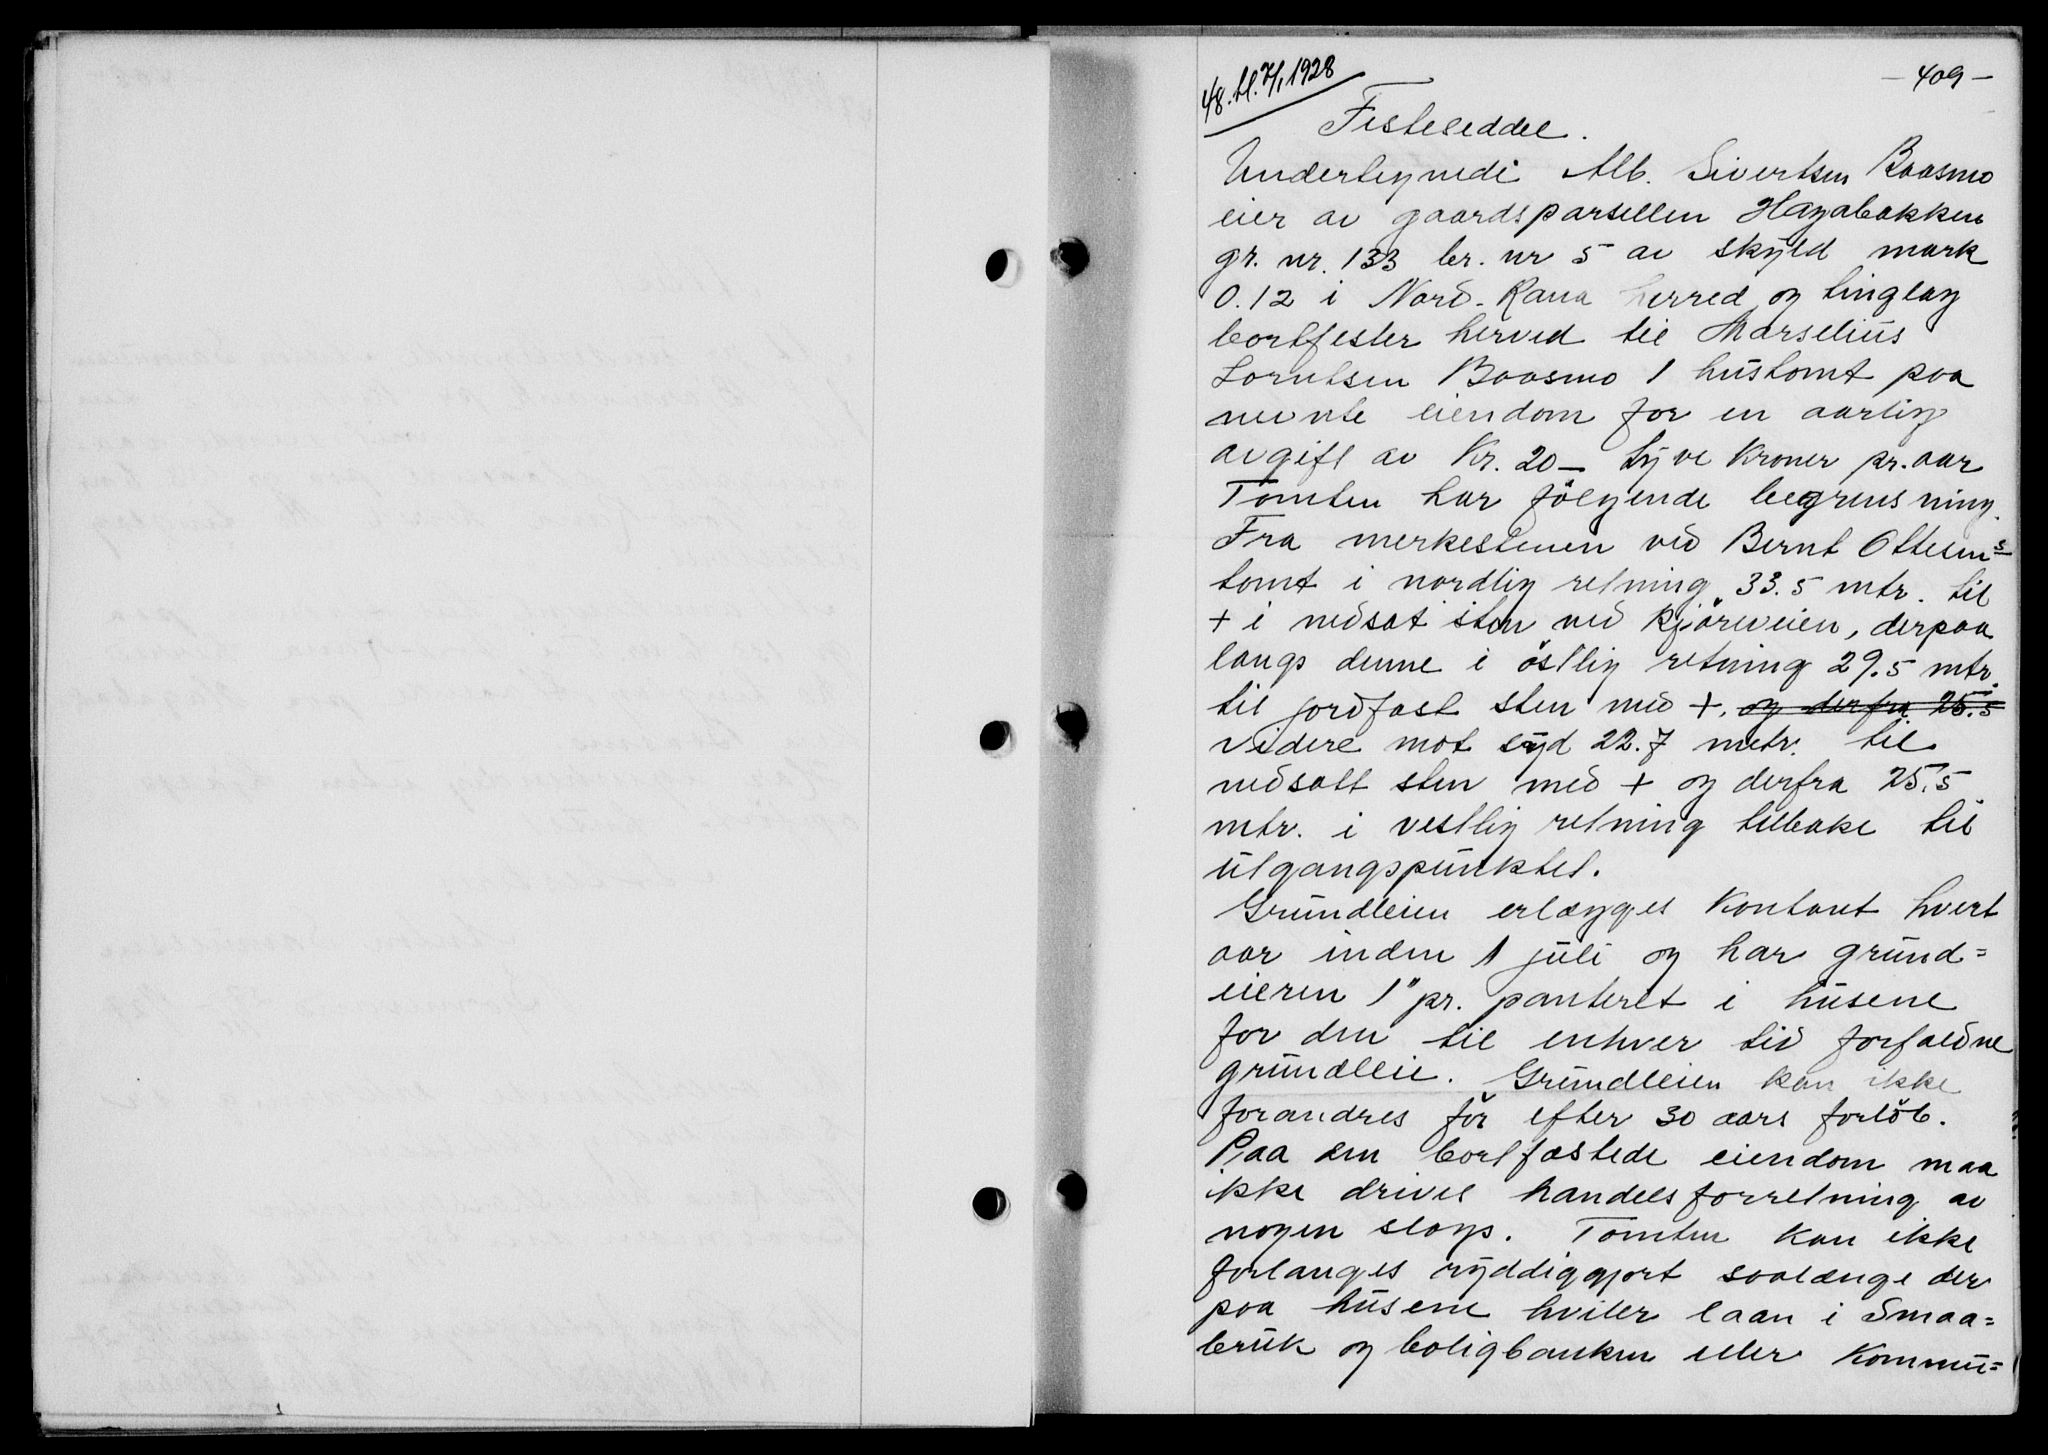 48. tl. 7/1 1928
- 409 -
Festeseddel.
Undertegnede Alb. Sivertsen Baasmo
eier av gaardsparsellen Hagabakken
gr. nr. 133 br. nr 5 av skyld mark
0.12 i Nord-Rana herred og tinglag
bortfester herved til Marselius
Lorntsen Baasmo 1 hustomt paa
nevnte eiendom for en aarlig
avgift av Kr. 20 – tyve Kroner pr. aar
Tomten har følgende begrensning.
Fra merkestenen ved Bernt Ottesens
tomt i nordlig retning 33.5 mtr. til
+ i nedsat sten ved kjøreveien, derpaa
langs denne i østlig retning 29.5 mtr.
til jordfast sten med +, og derfra 25.5
videre mot syd 22.7 metr. til
nedsatt sten med + og derfra 25.5
mtr. i vestlig retning tilbake til
utgangspunktet.
Grundleien erlægges Kontant hvert
aar inden 1 juli og har grund=
eieren 1" pr. panteret i husene
for den til enhver tid forfaldne
grundleie. Grundleien kan ikke
forandres før efter 30 aars forløb.
Paa den bortfæstede eiendom maa
ikke drives handelsforretning av
nogen slags. Tomten kan ikke
forlanges ryddiggjort saalænge der
paa husene hviler laan i Smaa=
bruk og boligbanken eller Kommu=